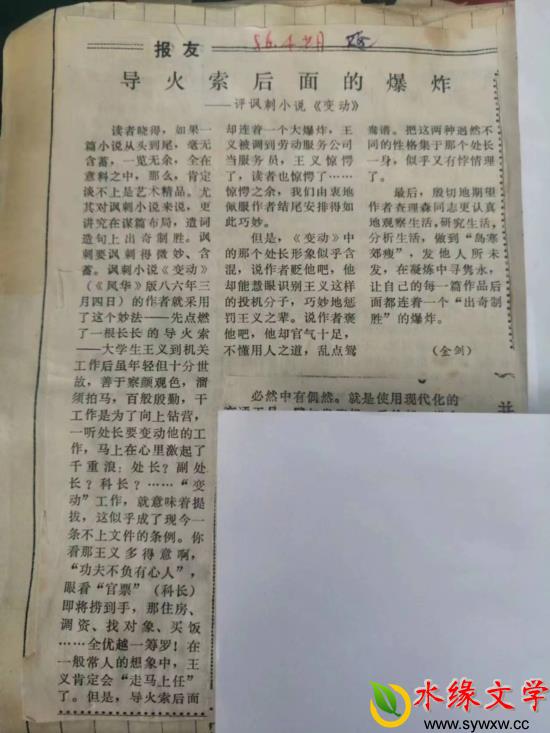 报友
56.4.
导火索后面的爆炸
——评讽刺小说《变动》
读者晓得，如果一
篇小说从头到尾，毫无
含蓄，一览无余，全在
意料之中，那么，肯定
谈不上是艺术精品。尤
其对讽刺小说来说，更
讲究在谋篇布局，遣词
造句上出奇制胜。讽
刺要讽刺得微妙、含
蓄。讽刺小说《变动》
（《风华》版八六年三
月四日）的作者就采用
了这个妙法——先点燃
了一根长长的导火索
——大学生王义到机关
工作后虽年轻但十分世
故，善于察颜观色，溜
须拍马，百般殷勤，干
工作是为了向上钻营，
一听处长要变动他的工
作，马上在心里激起了
千重浪：处长？副处
长？科长？……“变
动”工作，就意味着提
拔，这似乎成了现今一
条不上文件的条例。你
看那王义多得意啊，
“功夫不负有心人”，
眼看“官票”（科长）
即将捞到手，那住房、
调资、找对象、买饭
……全优越一筹罗！在
一般常人的想象中，王
义肯定会“走马上任”
了。但是，导火索后面
却连着一个大爆炸，王
义被调到劳动服务公司
当服务员，王义惊愕
了，读者也惊愕了……
惊愕之余，我们由衷地
佩服作者结尾安排得如
此巧妙。
但是，《变动》中
的那个处长形象似乎含
混，说作者贬他吧，他
却能慧眼识别王义这样
的投机分子，巧妙地惩
罚王义之辈。说作者褒
他吧，他却官气十足，
不懂用人之道，乱点鸳
鸯谱。把这两种迥然不
同的性格集于那个处长
一身，似乎又有悖情理
了。
最后，殷切地期望
作者查理森同志更认真
地观察生活，研究生活，
分析生活，做到“岛寒
郊瘦”，发他人所未
发，在凝炼中寻隽永，
让自己的每一篇作品后
面都连着一个“出奇制
胜”的爆炸。
（金剑）
必然中有偶然。就是使用现代化的
水缘文学
www.sywxw.cc